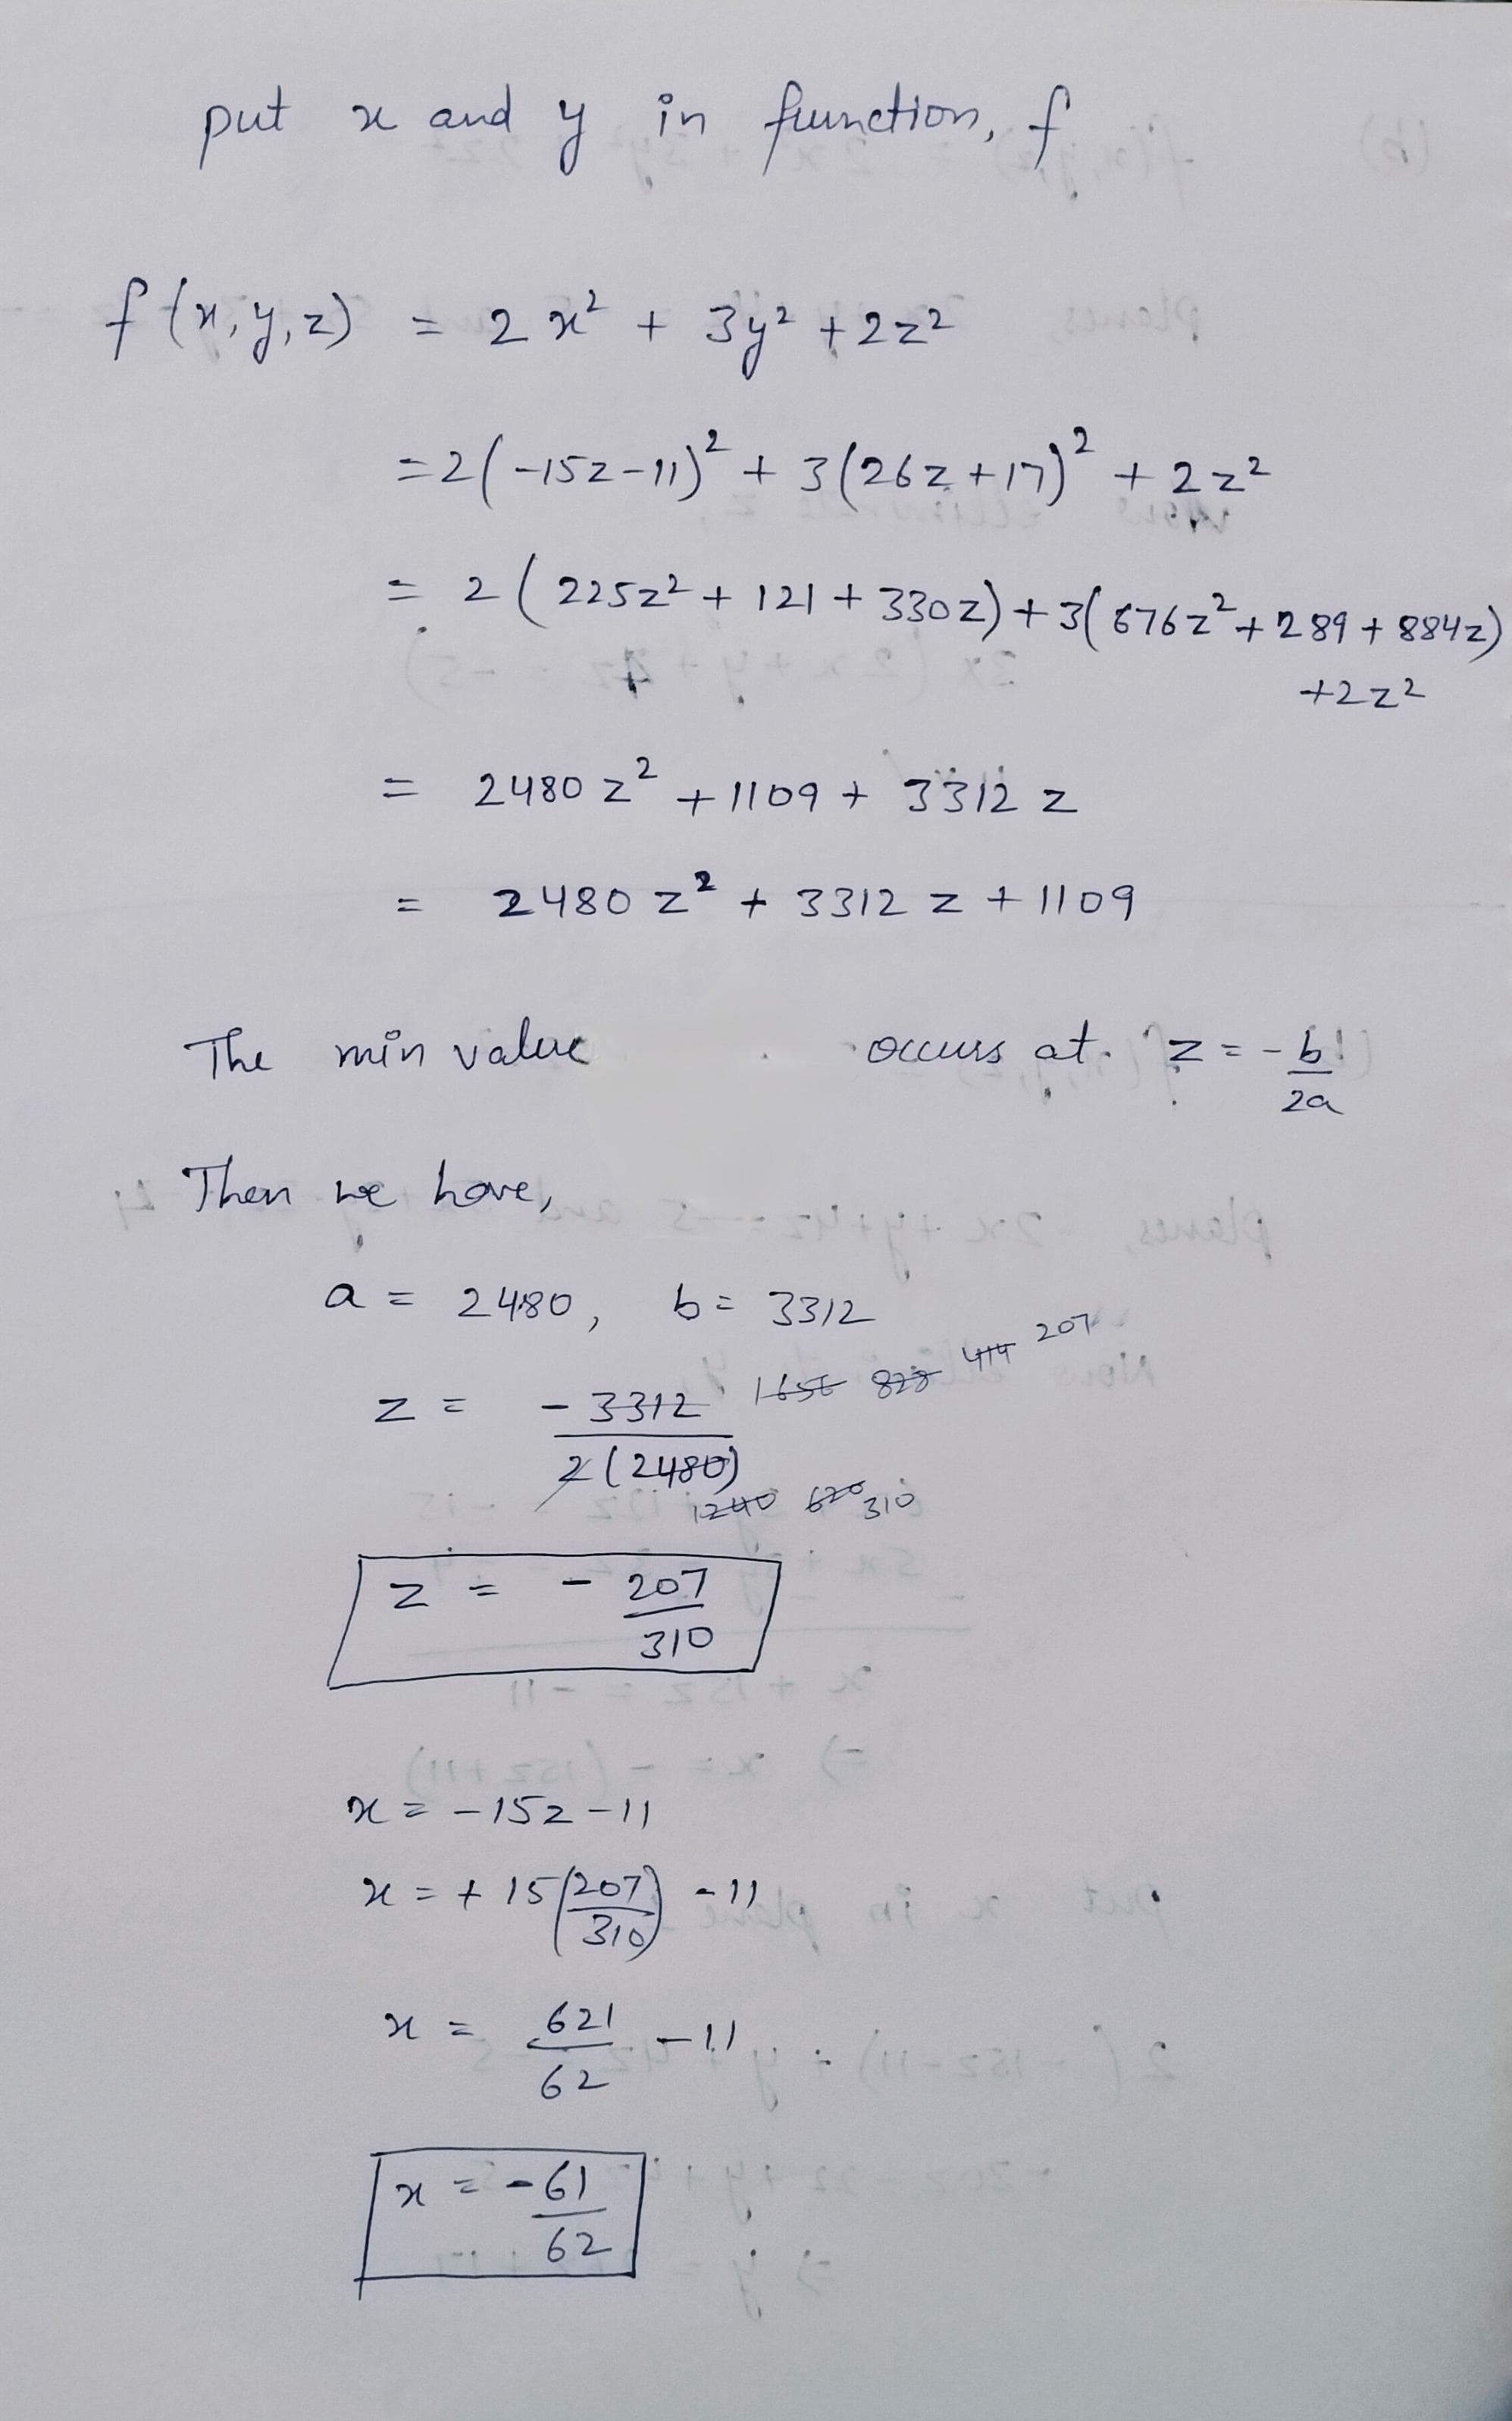 put x and y in function, f
f(x,y,z) = 2x² + 3y² + 2z²
= 2(-15z-11)² + 3(26z+17)² + 2z²
= 2(225z² + 121 + 330z) + 3(676z² + 289 + 884z)
+2z²
= 2480z² + 1109 + 3312z
= 2480z² + 3312z + 1109
The min value occurs at z = -b/2a
Then we have,
a = 2480, b = 3312
z = -3312/2(2480) 1656 828 414 207
1240 620 310
z = -207/310
x = -15z-11
x = +15(207/310) -11
x = 621/62 -11
x = -61/62